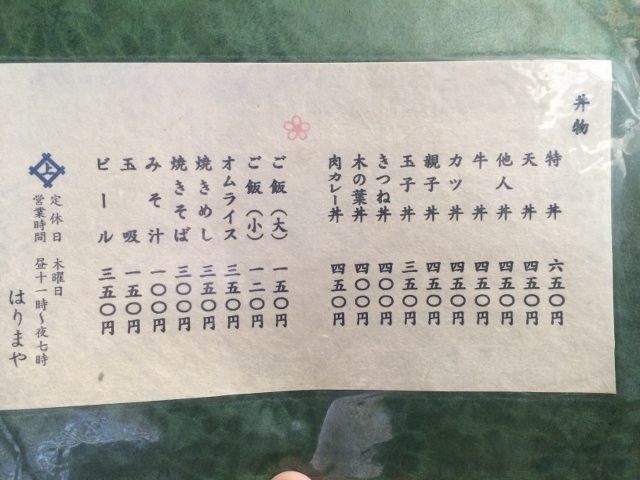 丼物
特丼 六五〇円
天丼 四五〇円
他人丼 四五〇円
牛丼 四五〇円
カツ丼 四五〇円
親子丼 四五〇円
玉子丼 三五〇円
きつね丼 四〇〇円
木の葉丼 四〇〇円
肉カレー丼 四五〇円
ご飯（大） 一五〇円
ご飯（小） 一二〇円
オムライス 三五〇円
焼きめし 三五〇円
焼きそば 三〇〇円
みそ汁 一〇〇円
玉吸 一五〇円
ビール 三五〇円
上
定休日 木曜日
営業時間 昼十一時～夜七時
はりまや